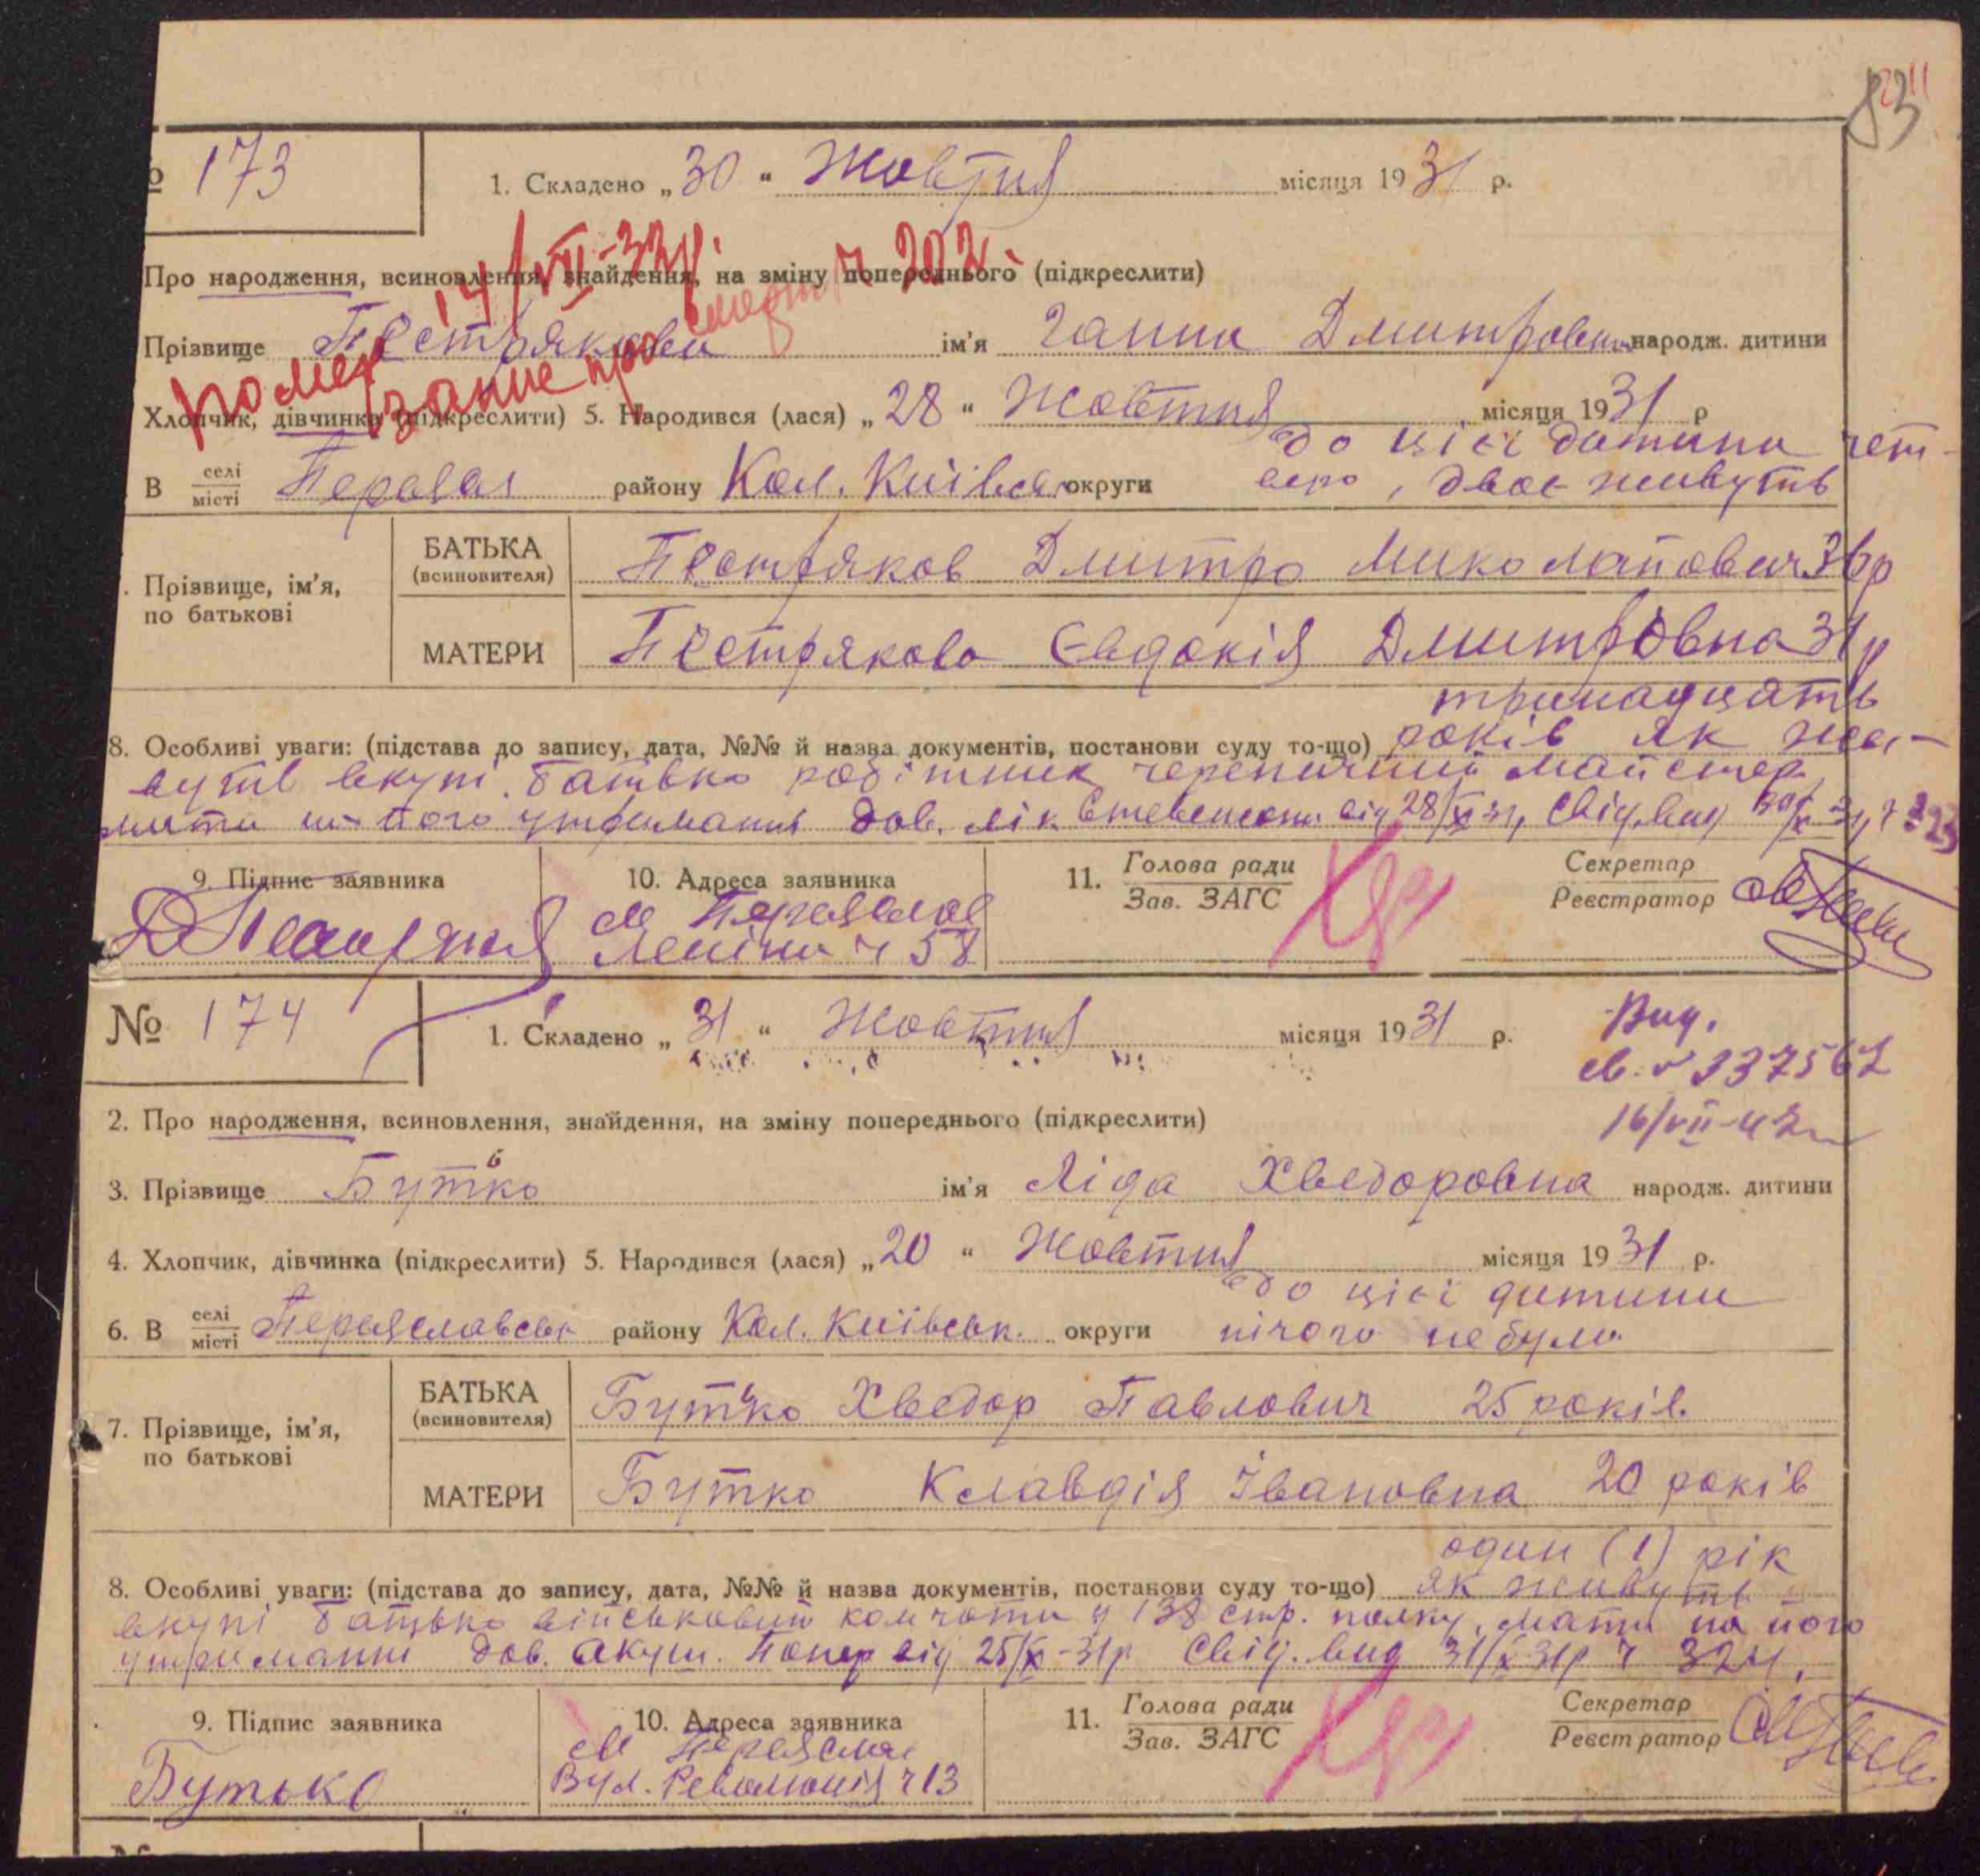 83
№ 173
1. Складено „30“ Жовтня місяця 1931 р.
Про народження, всиновлення, знайдення, на зміну попереднього (підкреслити)
14/VII-33р. ч 202.
Прізвище Пестрякова ім'я Ганна Дмитровна народж. дитини
помер
Хлопчик, дівчинка (підкреслити) 5. Народився (лася) „28“ Жовтня місяця 1931 р
до цієї дитини чет-
В селі/місті Переяслав району Кол. Київськ округи веро, двоє живуть
Прізвище, ім'я, по батькові
БАТЬКА (всиновителя) Пестряков Дмитро Миколайович 36р
МАТЕРИ Пестрякова Євдокія Дмитровна 31р
тринадцять
8. Особливі уваги: (підстава до запису, дата, №№ й назва документів, постанови суду то-що) років як жи-
вуть вкупі. батько робітник черепичний майстер
мати на його утриманні Дов. лік. від 28/X 31, Свід. вид 30/X 31, ч 323
9. Підпис заявника
10. Адреса заявника
м Переяслав
Леніна ч 58
11. Голова ради
Зав. ЗАГС
Секретар
Реєстратор
№ 174
1. Складено „31“ Жовтня місяця 1931 р.
Вид.
св. № 337562
16/VII-42
2. Про народження, всиновлення, знайдення, на зміну попереднього (підкреслити)
3. Прізвище Бутько ім'я Ліда Хведоровна народж. дитини
4. Хлопчик, дівчинка (підкреслити) 5. Народився (лася) „20“ Жовтня місяця 1931 р.
до цієї дитини
6. В селі/місті Переяславськ району Кол. Київськ. округи нічого не було
7. Прізвище, ім'я, по батькові
БАТЬКА (всиновителя) Бутько Хведор Павлович 25 років.
МАТЕРИ Бутко Клавдія Івановна 20 років
один (1) рік
8. Особливі уваги: (підстава до запису, дата, №№ й назва документів, постанови суду то-що) як живуть
вкупі батько військовий комроти у 138 стр. полку, мати на його
утриманні Дов. акуш. від 25/X-31р Свід. вид 31/X 31р ч 324.
9. Підпис заявника
Бутько
10. Адреса заявника
м Переяслав
Вул. Революція ч 13
11. Голова ради
Зав. ЗАГС
Секретар
Реєстратор